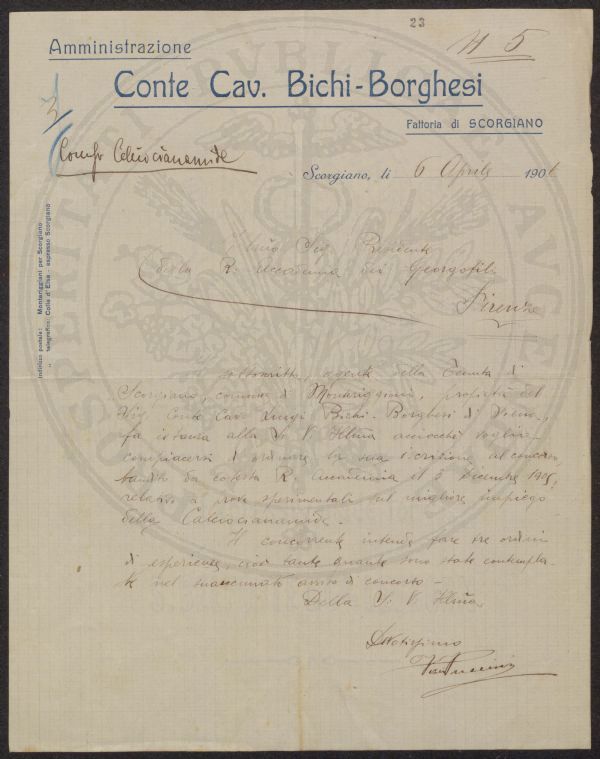 23
N 5
Amministrazione
Conte Cav. Bichi-Borghesi
Fattoria di SCORGIANO
Calciocianamide
Scorgiano, li 6 Aprile 190
Indirizzo postale: Monteriggioni per Scorgiano
" telegrafico: Colle d'Elsa - espresso Scorgiano
Illmo Sig. Presidente
della R. Accademia dei Georgofili
Firenze
Il sottoscritto, agente della Tenuta di
Scorgiano, comune di Monteriggioni, proprietà del
Sig. Conte Cav. Luigi Bichi-Borghesi di Siena,
fa istanza alla S. V. Illma acciocchè voglia
compiacersi di ordinare la sua iscrizione al concorso
bandito da cotesta R. Accademia il 3 Dicembre 1905,
relativo a prove sperimentali sul migliore impiego
della Calciocianamide.
Il concorrente intende fare tre ordini
di esperienze, cioè tante quante sono state contempla-
te nel suaccennato avviso di concorso -
Della S. V. Illma
Devotissimo
PROSPERITATI PUBLICAE AUGENDAE